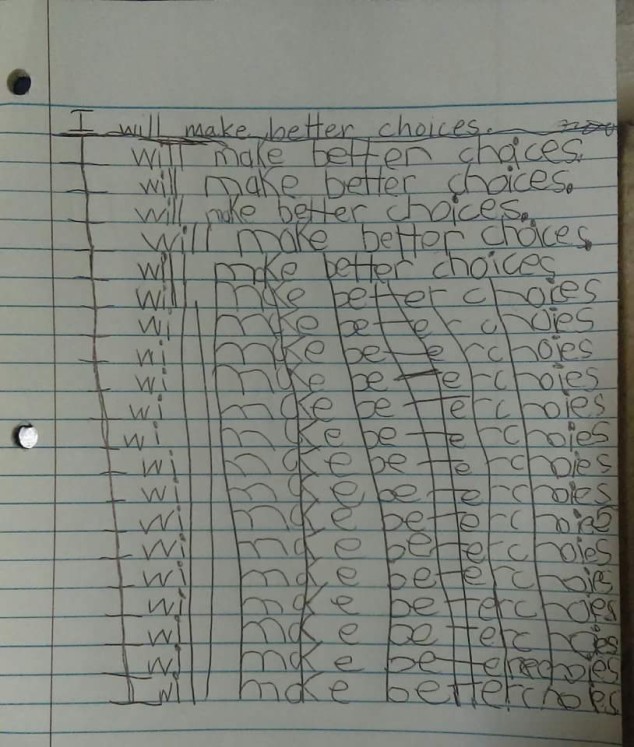 I will make better choices.
I will make better choices.
I will make better choices.
I will make better choices.
I will make better choices.
I will make better choices
I will make better choies
I will make better choies
I will make better choies
I will make better choies
I will make better choies
I will make better choies
I will make better choies
I will make better choies
I will make better choies
I will make better choies
I will make better choie
I will make better choies
I will make better choies
I will make better choies
I will make better choies